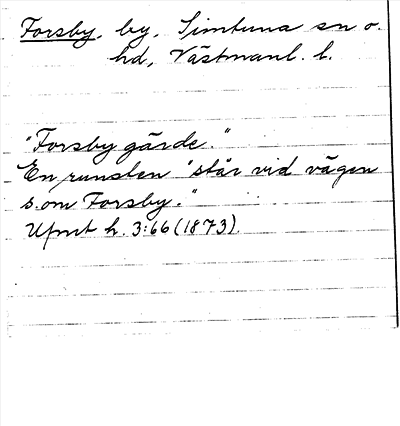 Forsby, by, Simtuna sn o.
hd, Västmanl. l.
"Forsby gärde."
En runsten "står vid vägen
s.om Forsby."
Upmt h. 3:66 (1873).